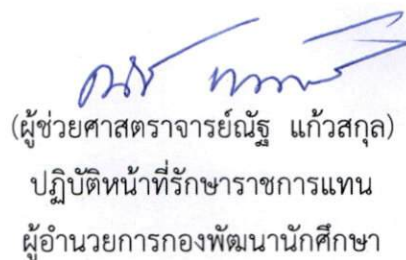 (ผู้ช่วยศาสตราจารย์ณัฐ แก้วสกุล)
ปฏิบัติหน้าที่รักษาราชการแทน
ผู้อำนวยการกองพัฒนานักศึกษา